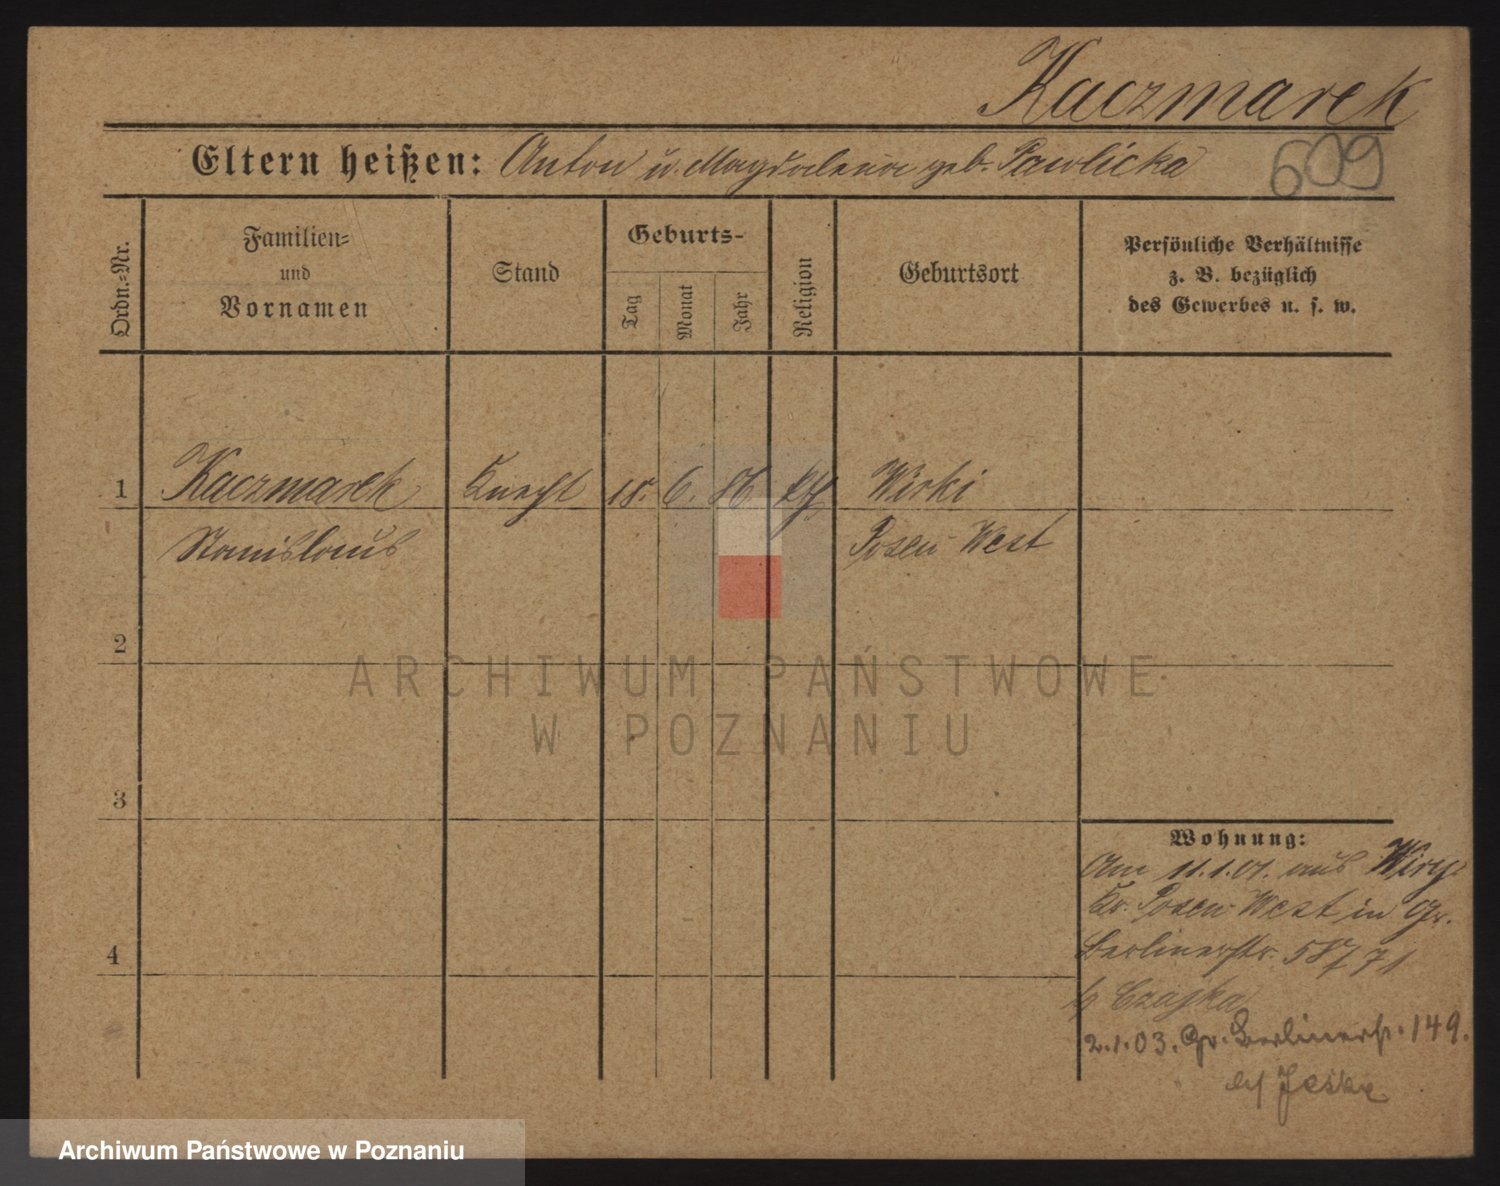 Kaczmarek
Eltern heißen: Anton u. Magdalena geb. Pawlicka 609
Ordn.-Nr.
Familien- und Vornamen
Stand
Geburts-
Tag
Monat
Jahr
Religion
Geburtsort
Persönliche Verhältnisse
z. B. bezüglich
des Gewerbes u. s. w.
1 Kaczmarek Knecht 18. 6. 86 kth Wirki
Stanislaus Posen West
2
ARCHIWUM PAŃSTWOWE
W POZNANIU
3
4
Wohnung:
Am 11.1.01. aus Wiry
Kr. Posen West in Gr.
Berlinerstr. 58/71
b/ Czajka
2.1.03. Gr. Berlinerstr. 149.
bei Jeske
Archiwum Państwowe w Poznaniu